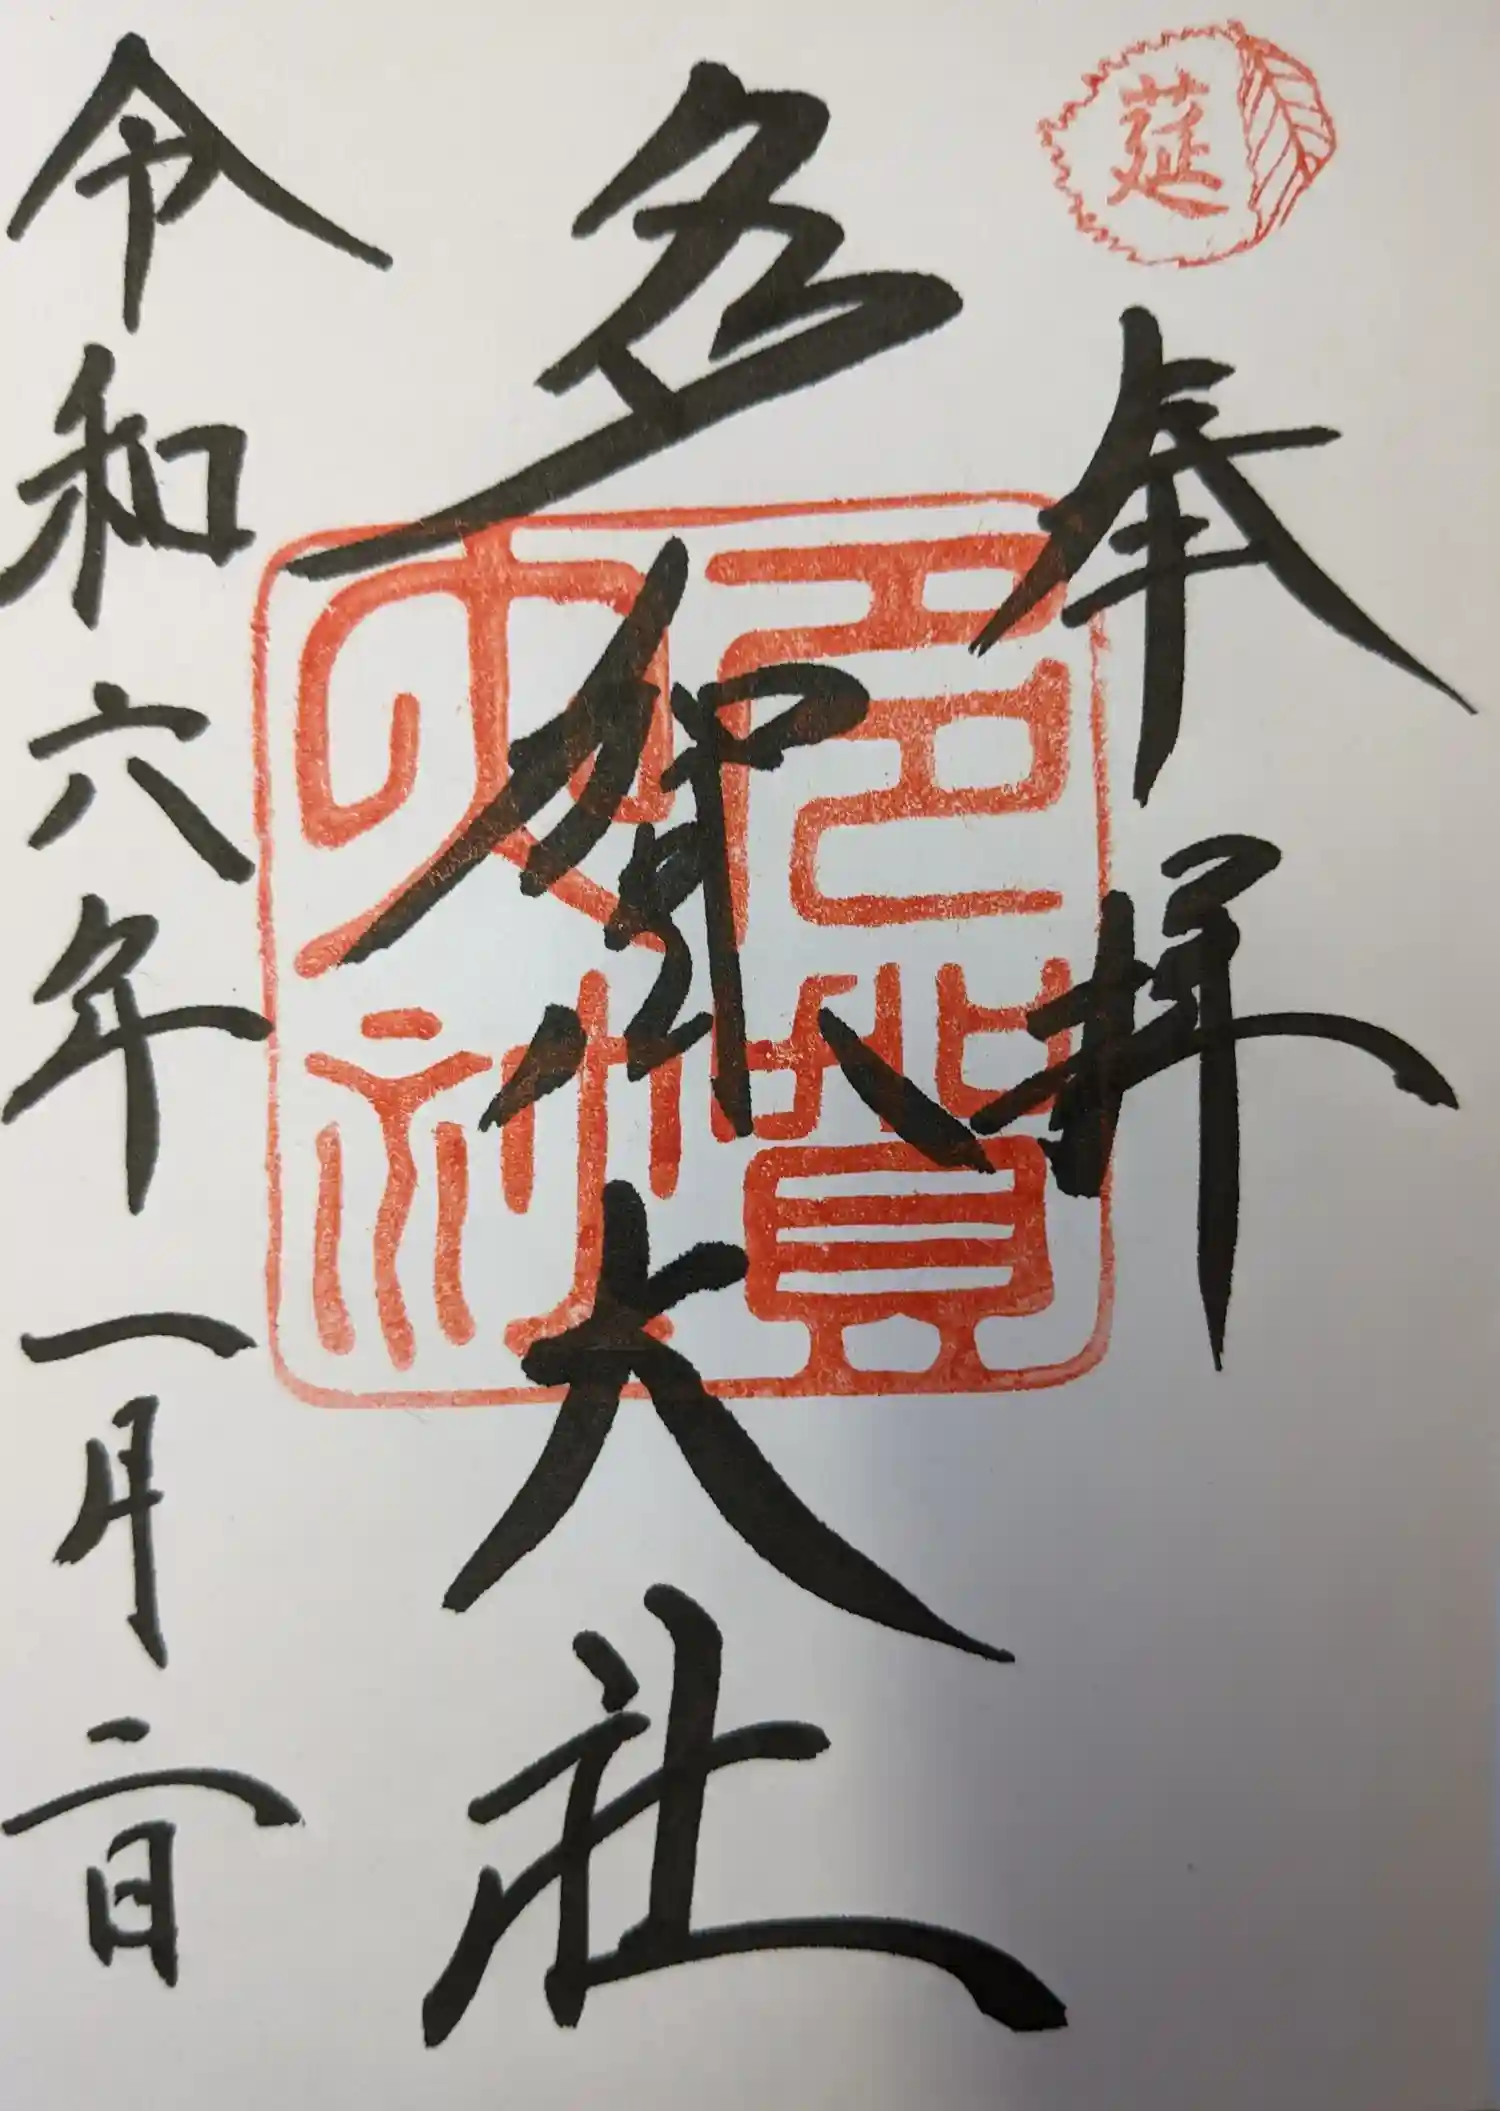 莚
奉拝
多賀大社
多賀大社
令和六年一月二日